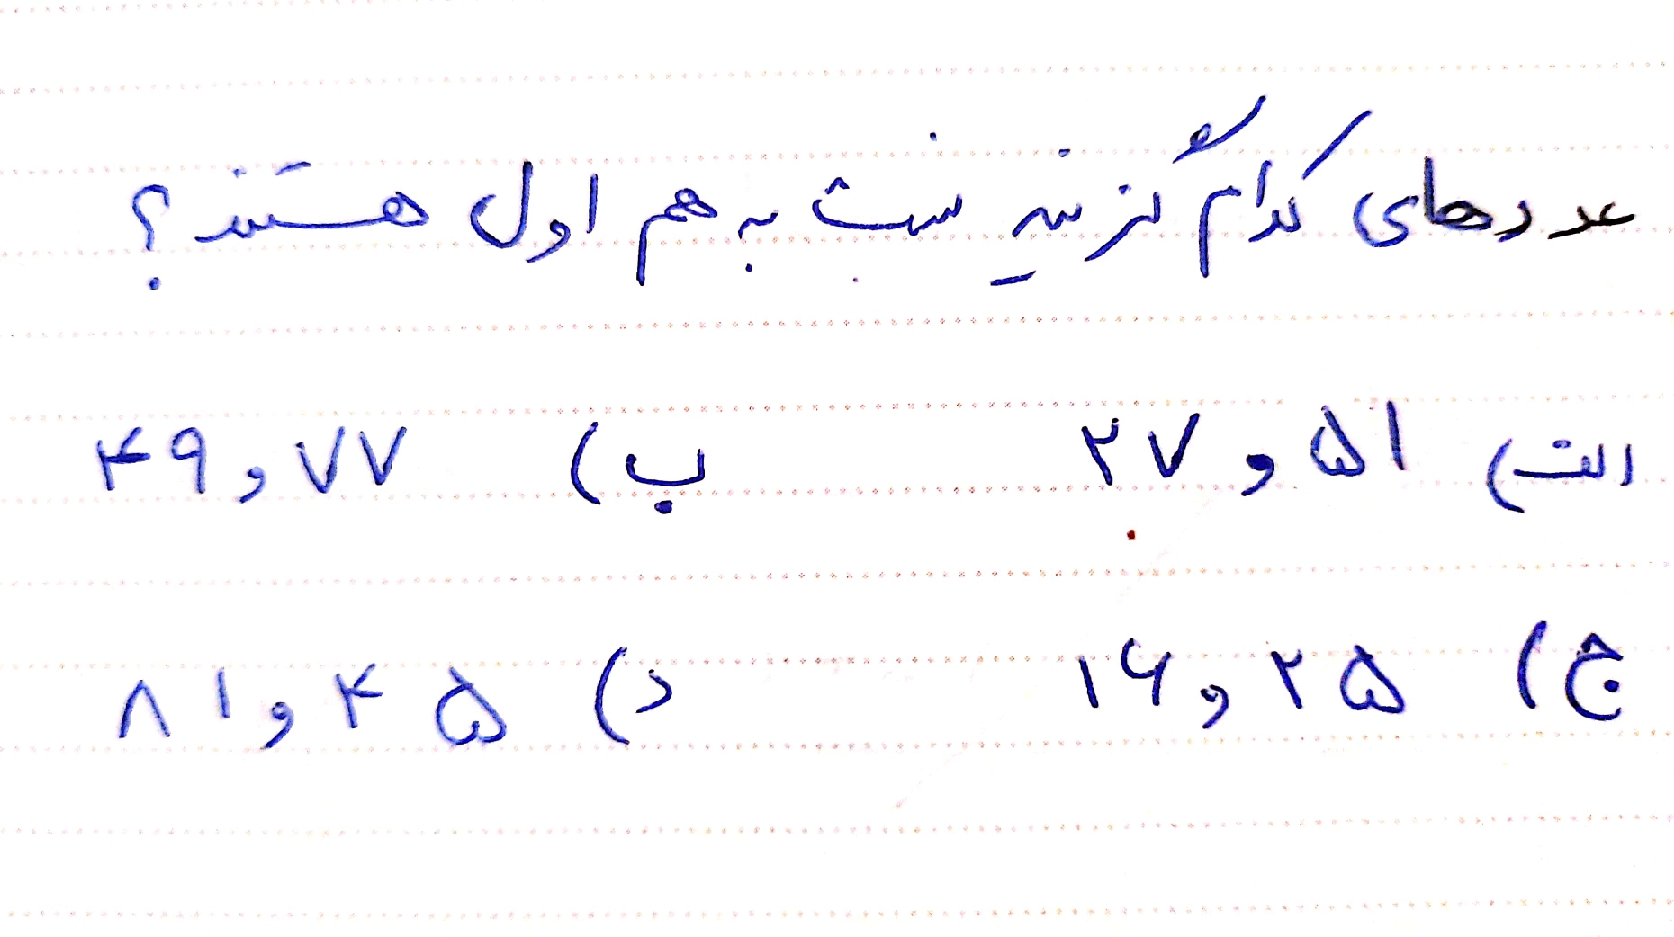 عددهای کدام گزینه نسبت به هم اول هستند؟
الف) ۵۱ و ۲۷ ب) ۷۷ و ۴۹
ج) ۲۵ و ۱۶ د) ۴۵ و ۸۱